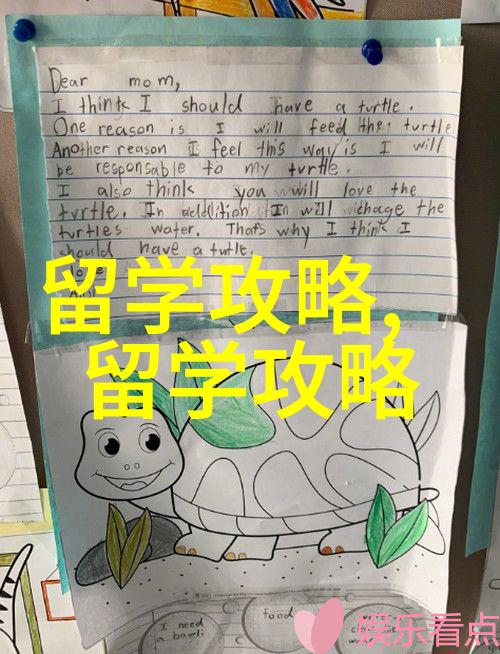 Dear mom,
I think I should have a turtle.
One reason is I will feed the turtle.
Another reason I feel this way is I will
be responsable to my turtle.
I also think you will love the
turtle. In addition I will chage the
turtles water. Thats why I think I
should have a turtle.
love
留学攻略,
留学攻略
I need
a bowl
food
娱乐看点